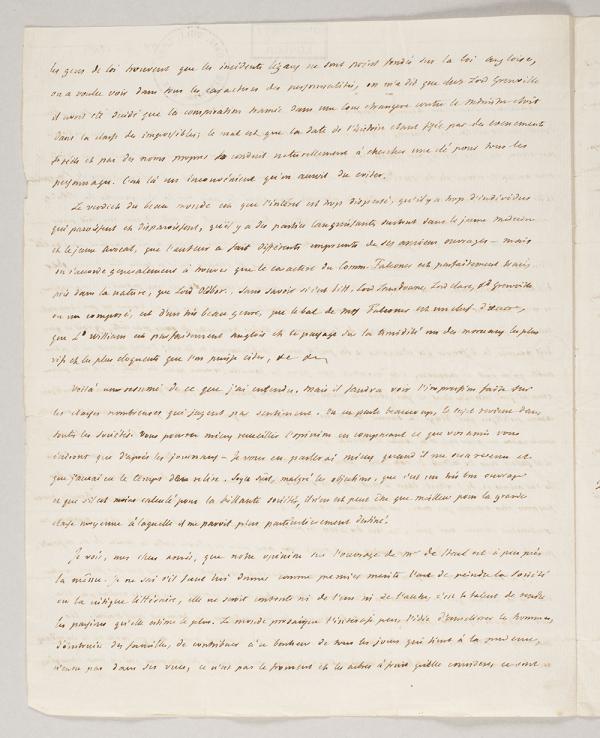 les gens de loi trouvent que les incidents légaux ne sont point fondés sur la loi angloise,
on a voulu voir dans tous les caractères des personnalités, on m'a dit que chez Lord Grenville
il avoit été décidé que la conspiration tramée dans une cour étrangère contre le ministre étoit
dans la classe des impossibles; le mal est que la date de l'histoire étant fixée par des evenements
et par des noms propres conduit naturellement à chercher une clé pour tous les
personnages. C'est là un inconvénient qu'on auroit du eviter.
Le verdict du beau monde est que l'intérêt est trop dispersé, qu'il y a trop d'individus
qui paroissent et disparoissent, qu'il y a des parties languissantes surtout dans le jeune médecin
et le jeune avocat, que l'auteur a fait différents emprunts de ses anciens ouvrages – mais
on s'accorde généralement à trouver que le caractère du Comm. Falconer est parfaitement tracé,
pris dans la nature, que Lord Oldbor., sans savoir si c'est Pitt, Lord Lansdowne, Lord Clare, Ld Grenville
ou un composé, est d'un bien beau genre, que le bal de Falconer est un chef d'œuvre,
que Ld William est parfaitement anglois et le passage sur la timidité un des morceaux les plus
vifs et les plus eloquents que l'on puisse citer, &c &c
Voilà un résumé de ce que j'ai entendu. Mais il faudra voir l'impression faite sur
les classes nombreuses qui jugent par sentiment. On en parle beaucoup, le sujet revient dans
toutes les sociétés. Vous pouvez mieux recueillir l'opinion en comparant ce que vos amis vous
écriront que d'après les journaux – Je vous en parlerai mieux quand il me sera revenu et
que j'aurai eu le temps d'en relire. Soyez sûre, malgré les objections, que c'est un très bon ouvrage
et que s'il est moins calculé pour la brillante société, il n'en est peut être que meilleur pour la grande
classe moyenne à laquelle il me paroit plus particulièrement destiné.
Je vois, mes chers amis, que notre opinion sur l'ouvrage de Me de Stael est à peu près
la même. Je ne sai s'il faut lui donner comme premier mérite l'art de peindre la société
ou la critique littéraire, elle ne seroit contente ni de l'un ni de l'autre, c'est le talent de rendre
les passions qu'elle estime le plus. Le monde prosaïque l'intéresse peu, l'idée d'améliorer les hommes,
d'instruire des familles, de contribuer à ce bonheur de tous les jours qui tient à la prudence,
n'entre pas dans ses vues, ce n'est pas le froment et les arbres à fruit qu'elle considère, ce sont